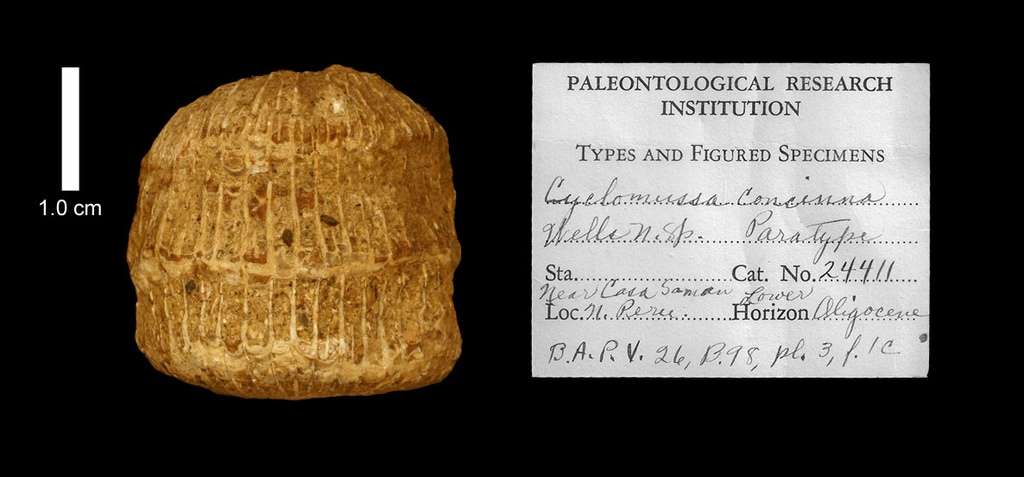 1.0 cm
PALEONTOLOGICAL RESEARCH
INSTITUTION
TYPES AND FIGURED SPECIMENS
Cyclomussa concinna
Wells N. Sp. Paratype
Sta. Cat. No. 24411
Near Casa Saman Lower
Loc. N. Peru. Horizon Oligocene
B.A.P. V. 26, B.98, pl. 3, f. 1c